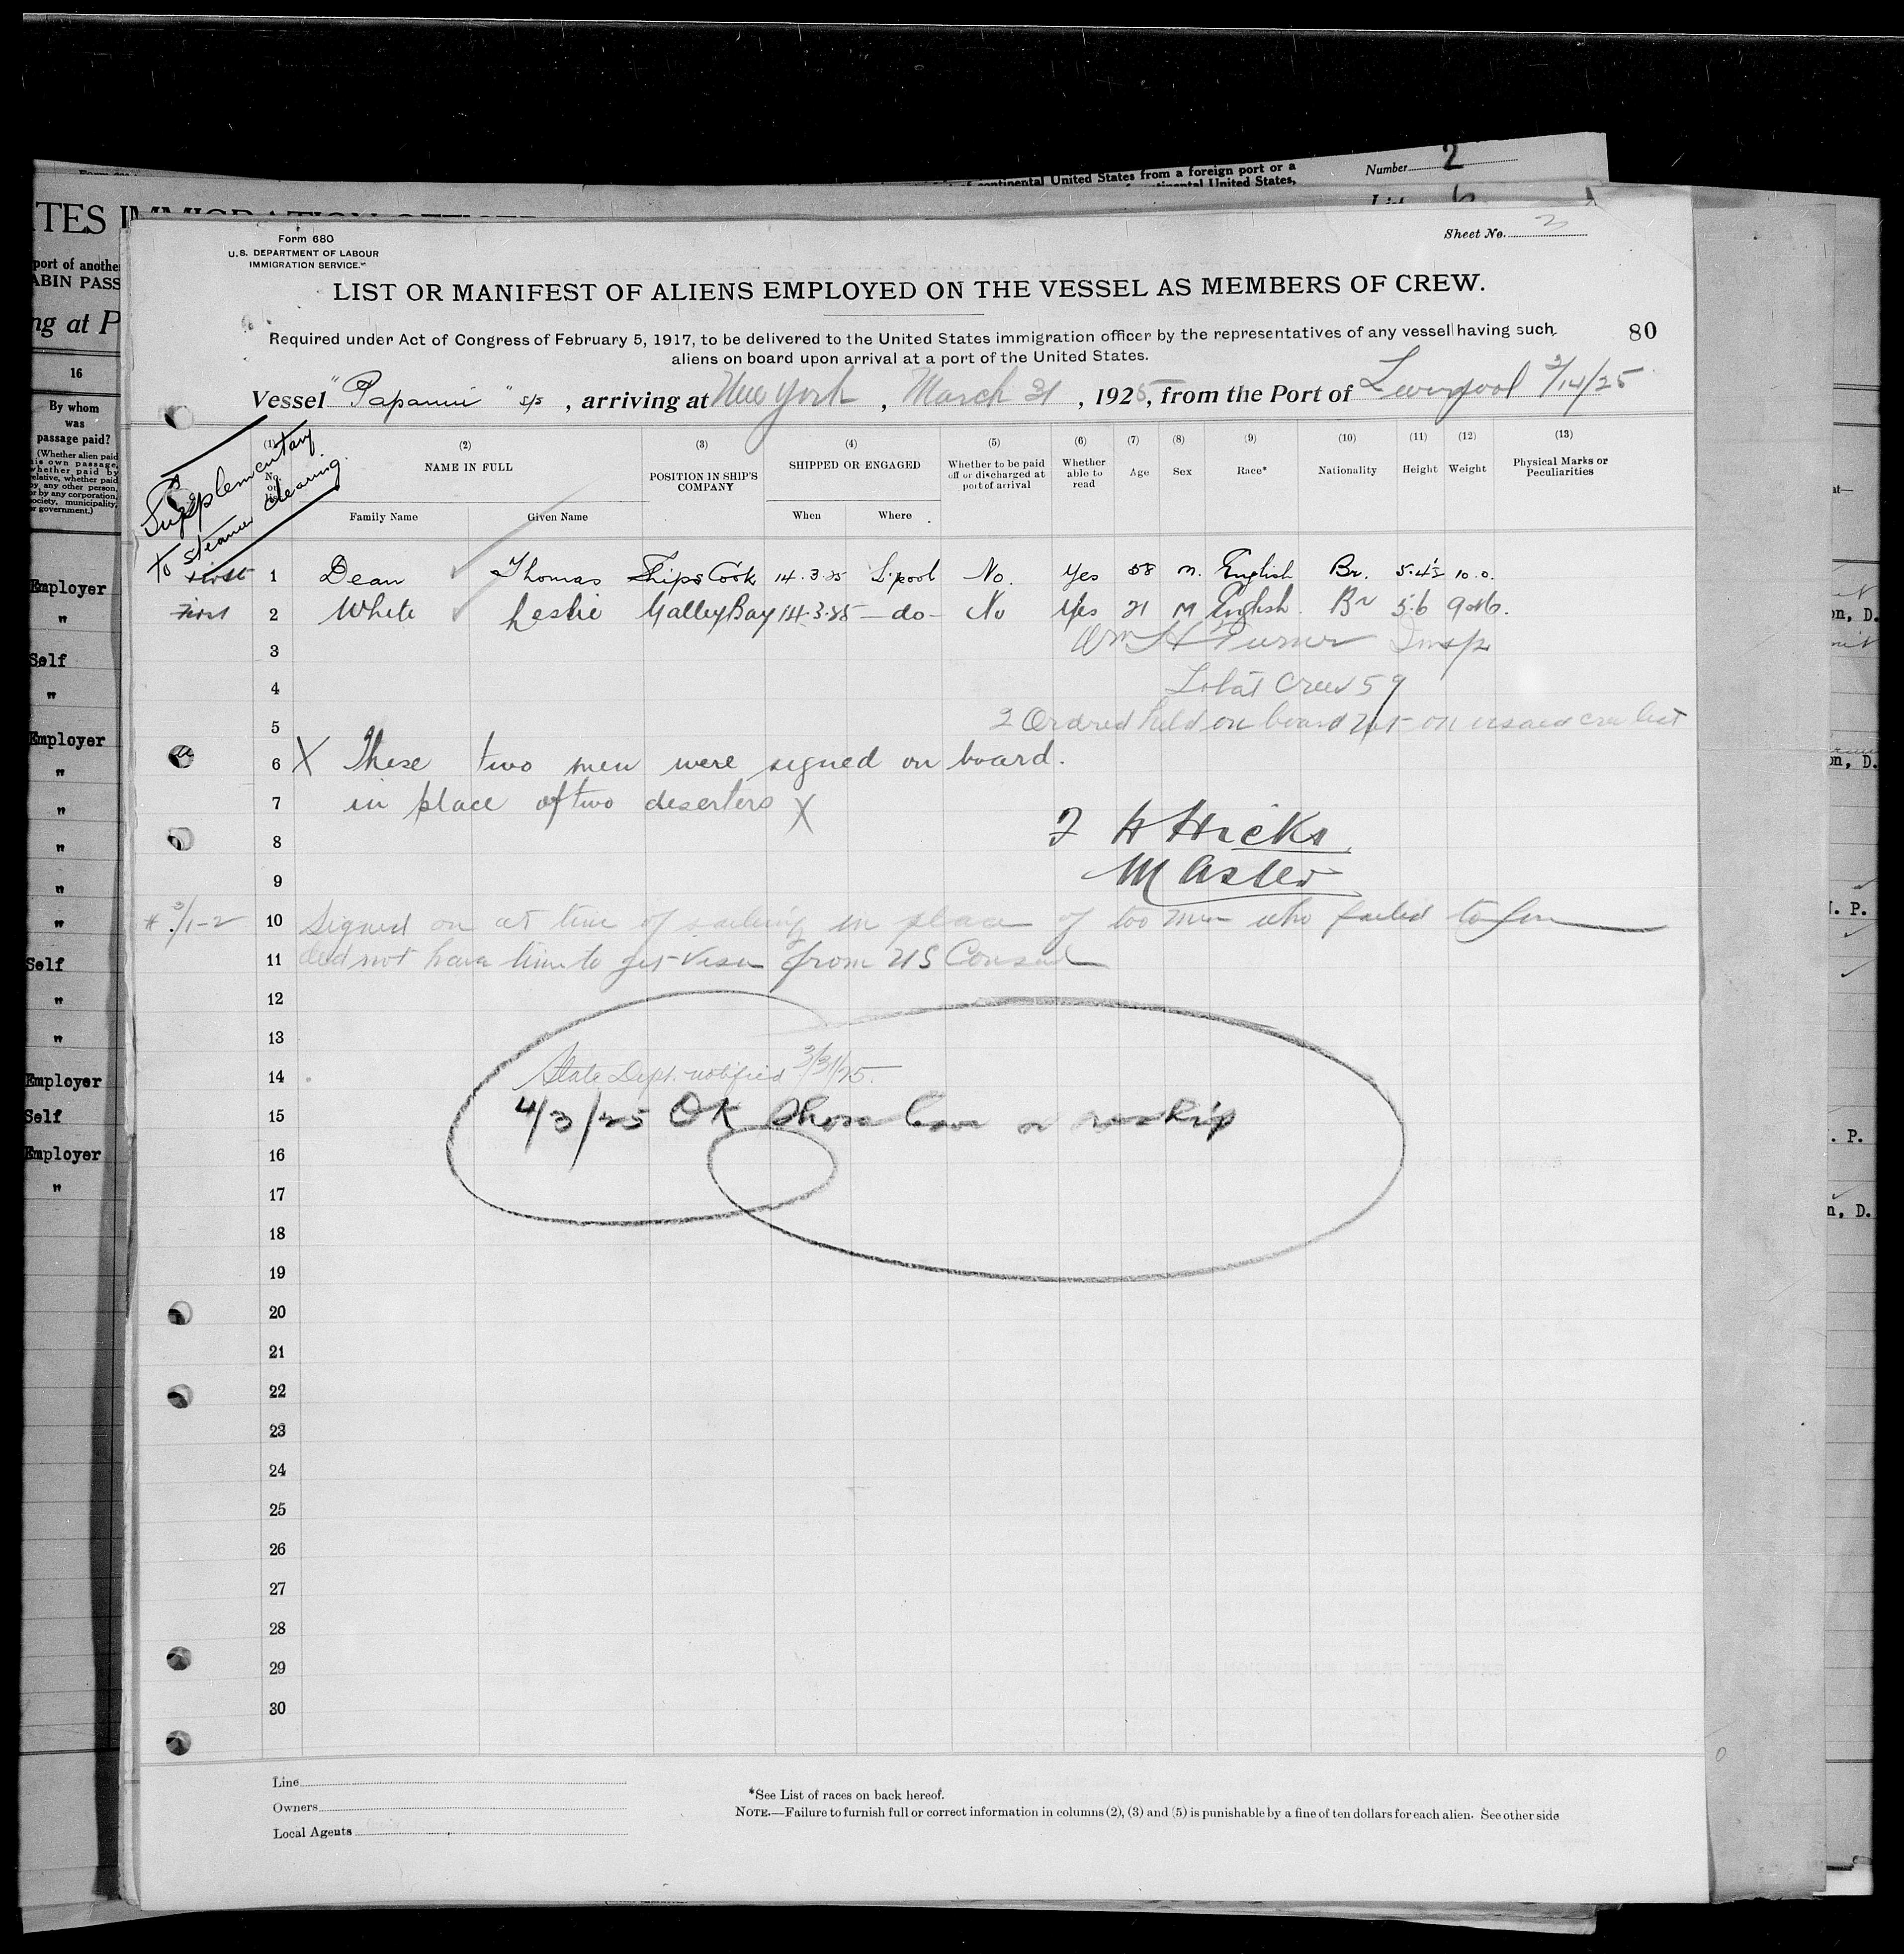 of continental United States from a foreign port or a
Number 2
TES IMMIGRATION OFFICER
port of another
ABIN PASS
ng at P
16
By whom
was
passage paid?
(Whether alien paid
his own passage,
whether paid by
relative, whether paid
by any other person,
or by any corporation,
society, municipality,
or government.)
Employer
"
Self
"
Employer
"
"
"
"
"
Self
"
"
Employer
Self
Employer
"
Form 680
U.S. DEPARTMENT OF LABOUR
IMMIGRATION SERVICE.
Sheet No. 3
LIST OR MANIFEST OF ALIENS EMPLOYED ON THE VESSEL AS MEMBERS OF CREW.
Required under Act of Congress of February 5, 1917, to be delivered to the United States immigration officer by the representatives of any vessel having such
aliens on board upon arrival at a port of the United States.
80
Vessel "Papanui" s/s, arriving at New York, March 31, 1925, from the Port of Liverpool 3/14/25
Supplementary
to steamer clearing
(1) (2) (3) (4) (5) (6) (7) (8) (9) (10) (11) (12) (13)
No. on list
NAME IN FULL
Family Name Given Name
POSITION IN SHIP'S COMPANY
SHIPPED OR ENGAGED
When Where
Whether to be paid off or discharged at port of arrival
Whether able to read
Age Sex Race* Nationality Height Weight
Physical Marks or Peculiarities
First 1 Dean Thomas Ships Cook 14.3.25 L'pool No. Yes 58 M. English Br. 5.4½ 10.0.
First 2 White Leslie Galley Boy 14.3.25 -do- No Yes 21 M English Br 5.6
3 Wm H Turner Insp
4 Total Crew 59
5 2 Ordered held on board not on visaed crew list
6 X These two men were signed on board.
7 in place of two deserters X
8 F H Hicks
9 Master
# 3/1-2 10 Signed on at time of sailing in place of two men who failed to join
11 did not have time to get visa from US Consul
12
13
14 State Dept. notified 3/31/25.
15 4/3/25 OK Shore leave or reship
16
17
18
19
20
21
22
23
24
25
26
27
28
29
30
Line
Owners
Local Agents
*See List of races on back hereof.
NOTE.—Failure to furnish full or correct information in columns (2), (3) and (5) is punishable by a fine of ten dollars for each alien. See other side